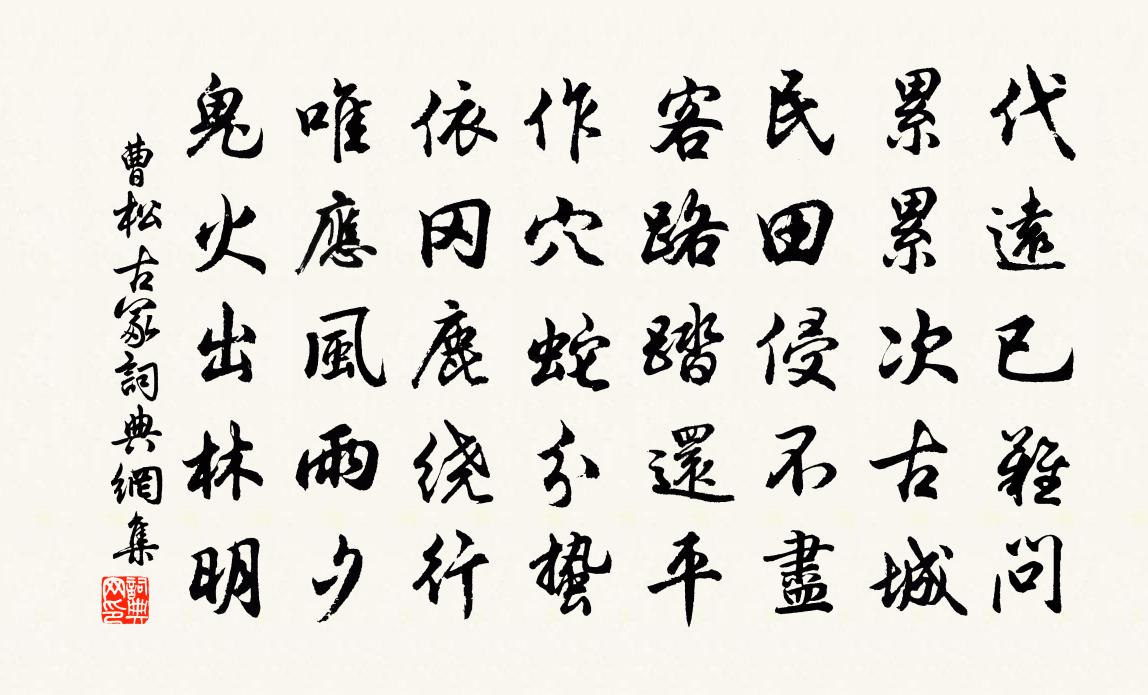 代遠已難問
累累次古城
民田侵不盡
客路踏還平
作穴蛇分蟄
依冈鹿绕行
唯應風雨夕
鬼火出林明
曹松古冢詞典網集
詞典网印